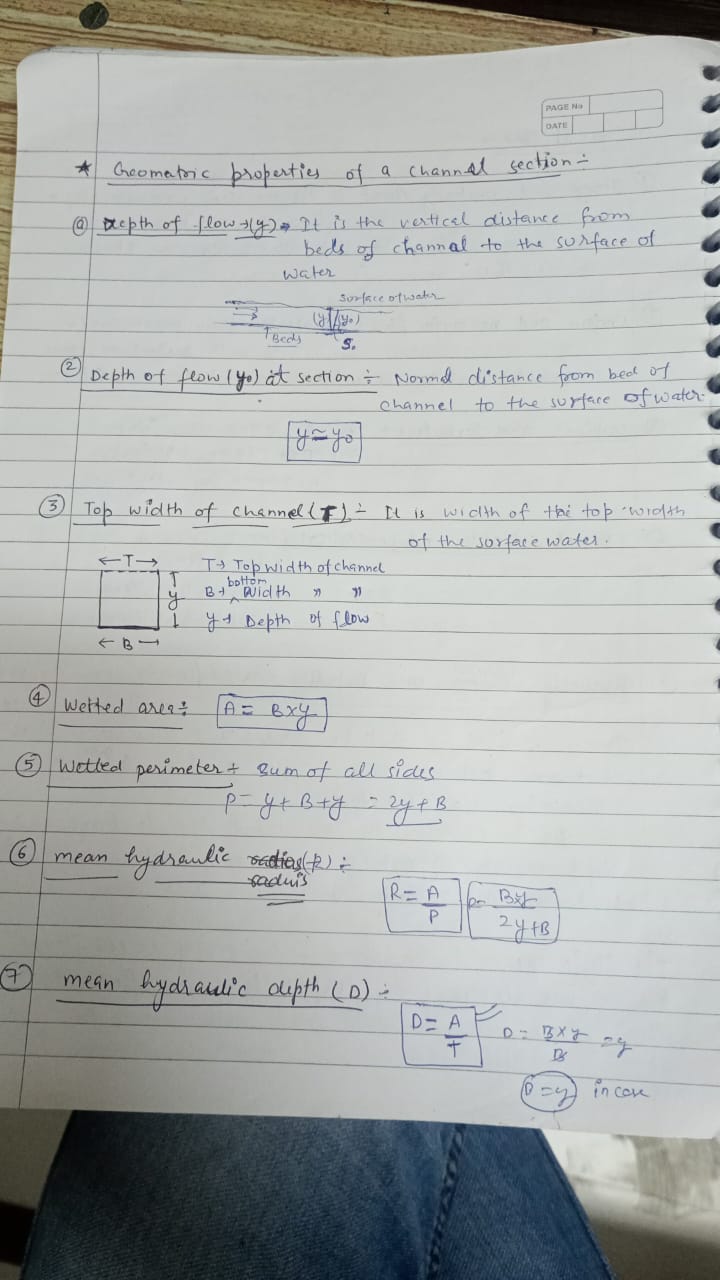 PAGE No
DATE
* Geomatric properties of a channel section ÷
ⓐ Depth of flow → (y) → It is the vertical distance from
beds of channal to the surface of
water
surface of water
(y) (y₀)
↑ Beds
S₀
② Depth of flow (y₀) at section ÷ Normal distance from bed of
channel to the surface of water.
y ≃ y₀
③ Top width of channel (T) ÷ It is width of the top width
of the surface water.
← T → T → Top width of channel
bottom
y B → Width " "
y → Depth of flow
← B →
④ Wetted area ÷ A = B×y
⑤ Wetted perimeter ÷ Sum of all sides
P = y + B + y = 2y + B
⑥ mean hydraulic (R) ÷
raduis
R = A/P R = B×y/2y+B
⑦ mean hydraulic depth (D) ÷
D = A/T D = B×y/B = y
D = y in case